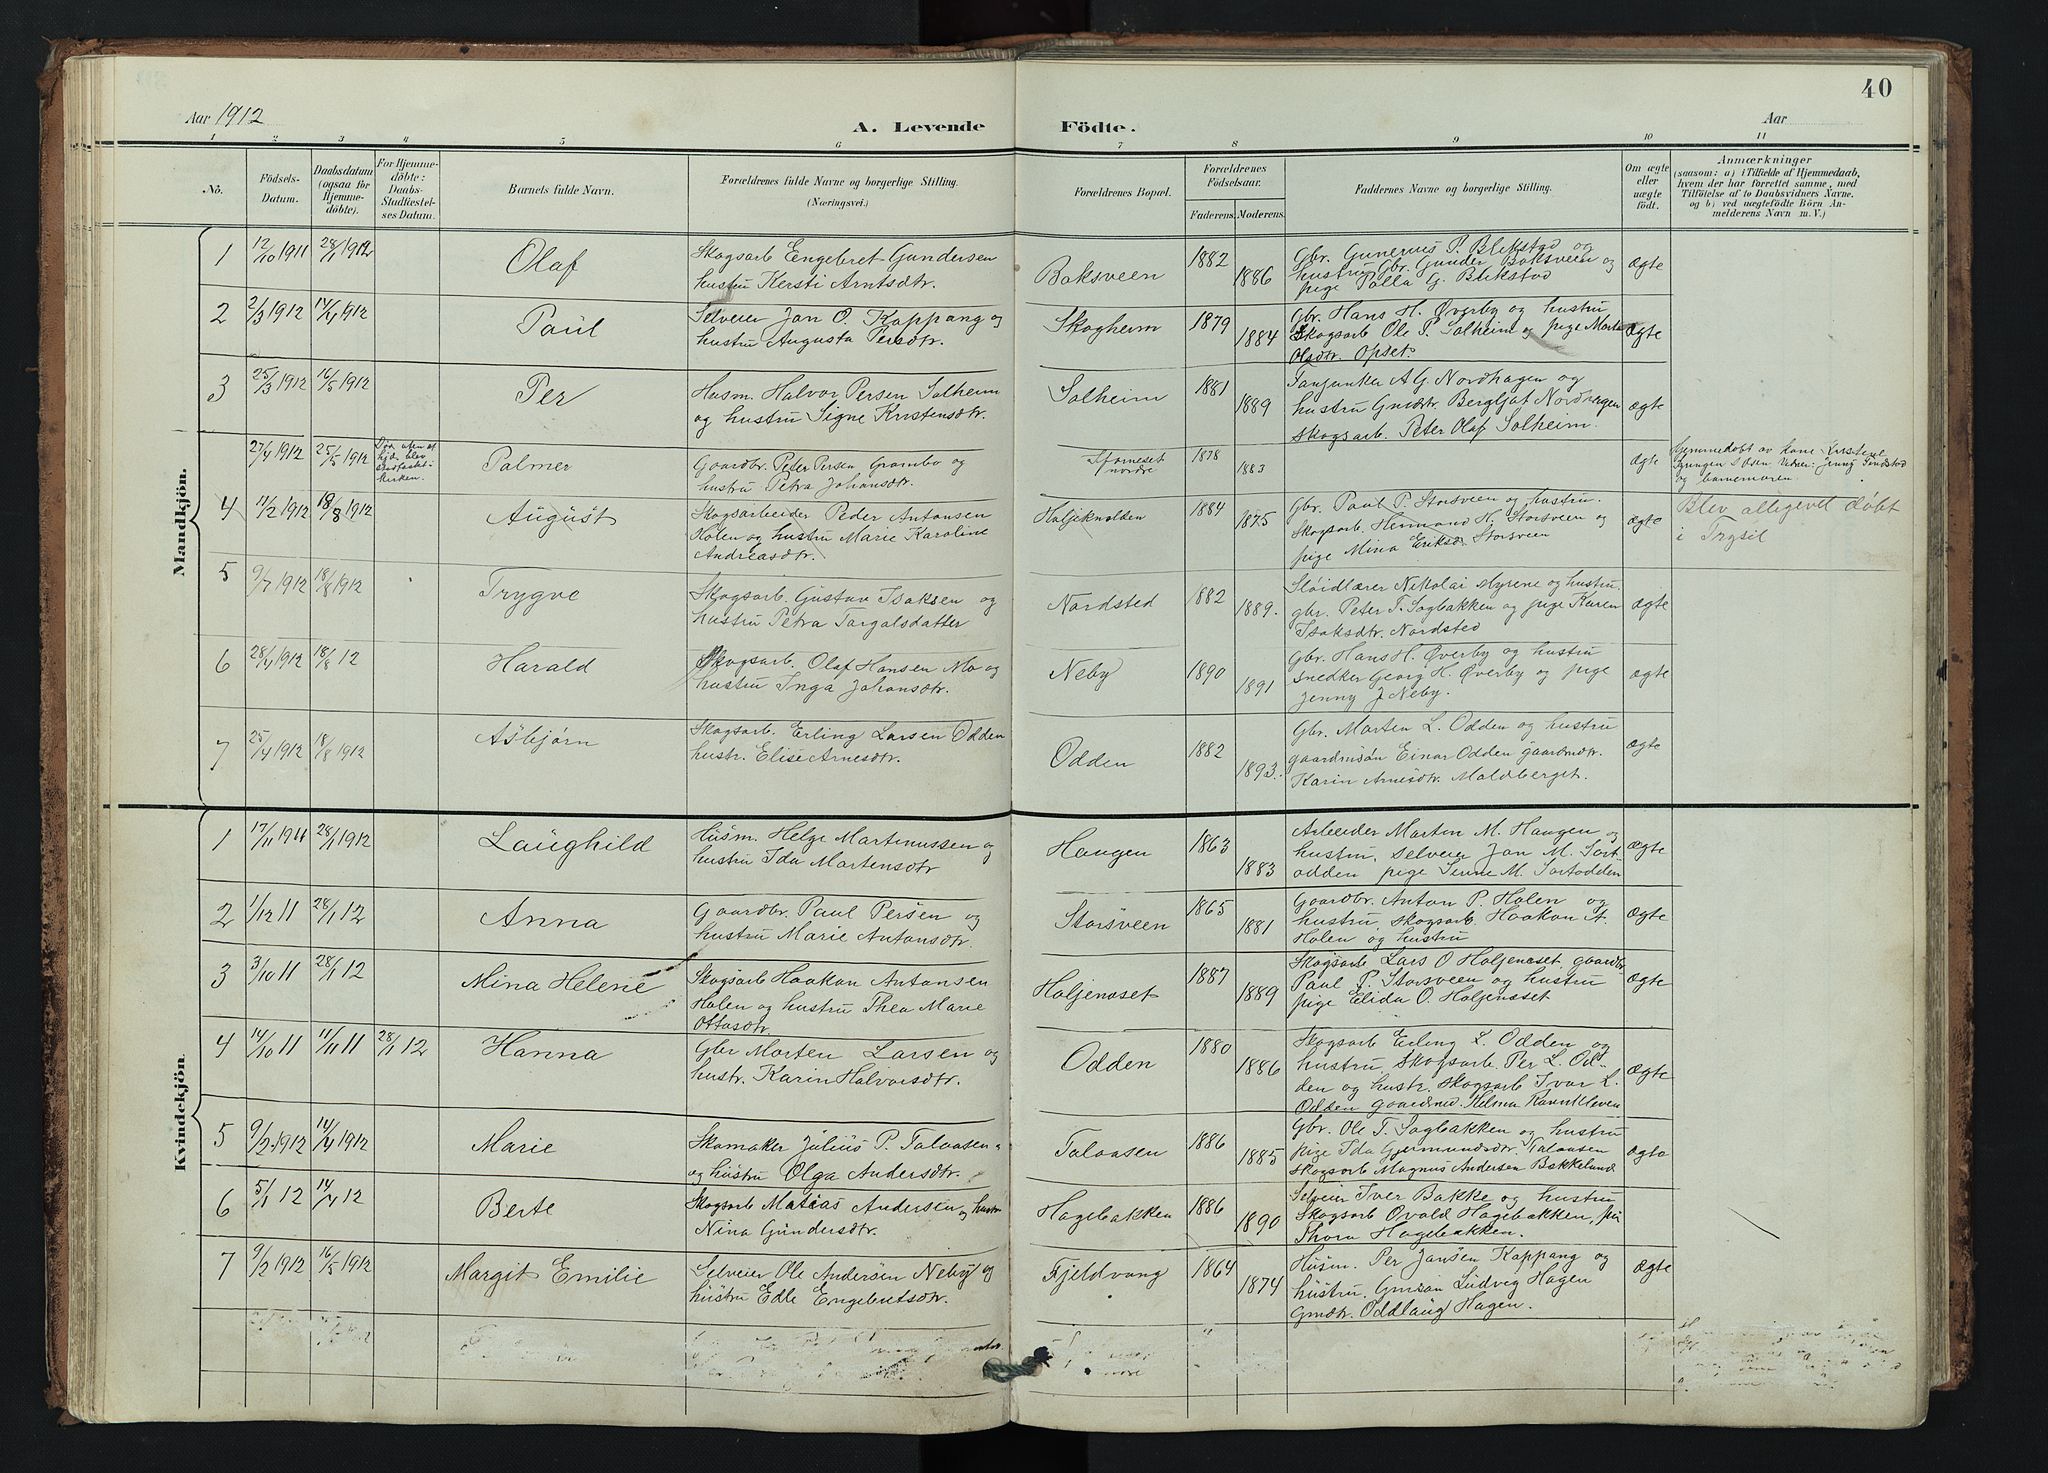 Aar 1912
A. Levende Födte.
Aar
40
1 2 3 4 5 6 7 8 9 10 11
No.
Födsels-Datum.
Daabsdatum (ogsaa for Hjemme-döbte).
For Hjemme-döbte: Daabs-Stadfæstelses Datum.
Barnets fulde Navn.
Forældrenes fulde Navne og borgerlige Stilling. (Næringsvei.)
Forældrenes Bopæl.
Forældrenes Födselsaar.
Faderens. Moderens.
Faddernes Navne og borgerlige Stilling.
Om ægte eller uægte födt.
Anmærkninger
(saasom: a) i Tilfælde af Hjemmedaab,
hvem der har forrettet samme, med
Tilföielse af to Daabsvidners Navne.
og b) ved uægtefödte Börn An-
melderens Navn m. V.)
Mandkjön.
1 12/10 1911 28/1 1912 Olaf
Skogsarb Engebret Gundersen
hustru Kersti Arntsdtr.
Boksveen 1882 1886
Gbr. Gunerius P. Blikstad og
hustru, Gbr. Gunder Boksveen og
pige Palla G. Blikstad
Ægte
2 2/3 1912 14/4 1912 Paul
Selveier Jan O. Kappang og
hustru Augusta Persdtr.
Skogheim 1879 1884
Gbr. Hans H. Øverby og hustru
Skogsarb Ole P. Solheim og pige Marta
Olsdtr. Opset.
Ægte
3 25/3 1912 16/5 1912 Per
Husm. Halvor Persen Solheim
og hustru Signe Kristensdtr.
Solheim 1881 1889
Fanjunker A. G. Nordhagen og
hustru Gmdtr. Bergljot Nordhagen
Skogsarb. Peter Olaf Solheim.
Ægte
27/4 1912 25/5 1912
Palmer
Gaardbr. Peter Persen Grambo og
hustru Petra Johansdtr.
Storneset
nordre
1878 1883
Ægte
Hjemmedøbt av kone Kristine
og barnemoren.
4 11/2 1912 18/8 1912 August
Skogsarbeider Peder Antonsen
Holen og hustru Marie Karoline
Andreasdtr.
Holjeknolden 1884 1875
Gbr. Paul P. Storsveen og hustru.
Skogsarb Hermand H. Storsveen og
pige Mina Eriksd. Storsveen
Ægte
Blev alligevel døbt
i Trysil
5 9/7 1912 18/8 1912 Trygve
Skogsarb. Gustav Isaksen og
hustru Petra Torgalsdatter
Nordsted 1882 1889.
Sløidlærer Nikolai Myrene og hustru.
gbr. Peter T. Sagbakken og pige Karen
Isaksdtr. Nordsted
Ægte
6 28/4 1912 18/8 12 Harald
Skogsarb. Olaf Hansen Mo og
hustru Inga Johansdtr.
Neby 1890 1891
Gbr. Hans H. Øverby og hustru
snedker Georg H. Øverby og pige
Jenny J. Neby.
Ægte
7 25/4 1912 18/8 1912 Asbjørn
Skogsarb. Erling Larsen Odden
hustr. Elise Arnesdtr.
Odden 1882 1893.
Gbr. Morten L. Odden og hustru
gaardmsøn Einar Odden gaardmdtr.
Karin Arnesdtr. Moldberget.
Ægte
Kvindekjön.
1 17/11 1911 28/1 1912 Laughild
Husm. Helge Martinussen og
hustru Ida Martensdtr
Haugen 1863 1883
Arbeider Martin M. Haugen og
hustru, selveier Jan M. Sort-
odden pige Senne M. Sortodden
Ægte
2 1/12 11 28/1 12 Anna
Gaardbr. Paul Persen og
hustru Marie Antonsdtr.
Storsveen 1865 1881
Gaardbr. Anton P. Holen og
hustru, Skogsarb. Haakon A.
Holen og hustru
Ægte
3 3/10 11 28/1 12 Mina Helene
Skogsarb Haakon Antonsen
Holen og hustru Thea Marie
Ottosdtr.
Holjenæset 1887 1889
Skogsarb Lars O Holjenæset, gaardbr
Paul P. Storsveen og hustru
pige Elida O. Holjenæset
Ægte
4 14/10 11 11/11 11 28/1 12 Hanna
Gbr Morten Larsen og
hustr. Karin Halvorsdtr.
Odden 1880 1886
Skogsarb Erling L. Odden og
hustru, Skogsarb Per L. Od-
den og hustr. Skogsarb Ivar L.
Odden gaardmd. Helma Ravnkleven
Ægte
5 9/2 1912 14/4 1912 Marie
Skomaker Julius P. Talaasen
og hustru Olga Andersdtr.
Talaasen 1886 1885
Gbr. Ole T. Sagbakken og hustru
Pige Ida Gjermundsdtr. Talaasen
Skogsarb Magnus Andersen Bakkelund
Ægte
6 5/1 12 14/4 12 Berte
Skogsarb Matias Andersen og hustru
Nina Gundersdtr.
Hagebakken 1886 1890
Selveier Iver Bakke og hustru
Skogsarb Ovald Hagebakken, pi
Thora Hagebakken.
7 9/2 1912 16/5 1912 Margit Emilie
Selveier Ole Andersen Neby og
hustru Edle Engebretsdtr.
Fjeldvang 1864 1874
Husm. Per Jansen Kappang og
hustru, Gmsøn Ludvig Hagen
Gmdtr. Oddlaug Hagen.
Ægte